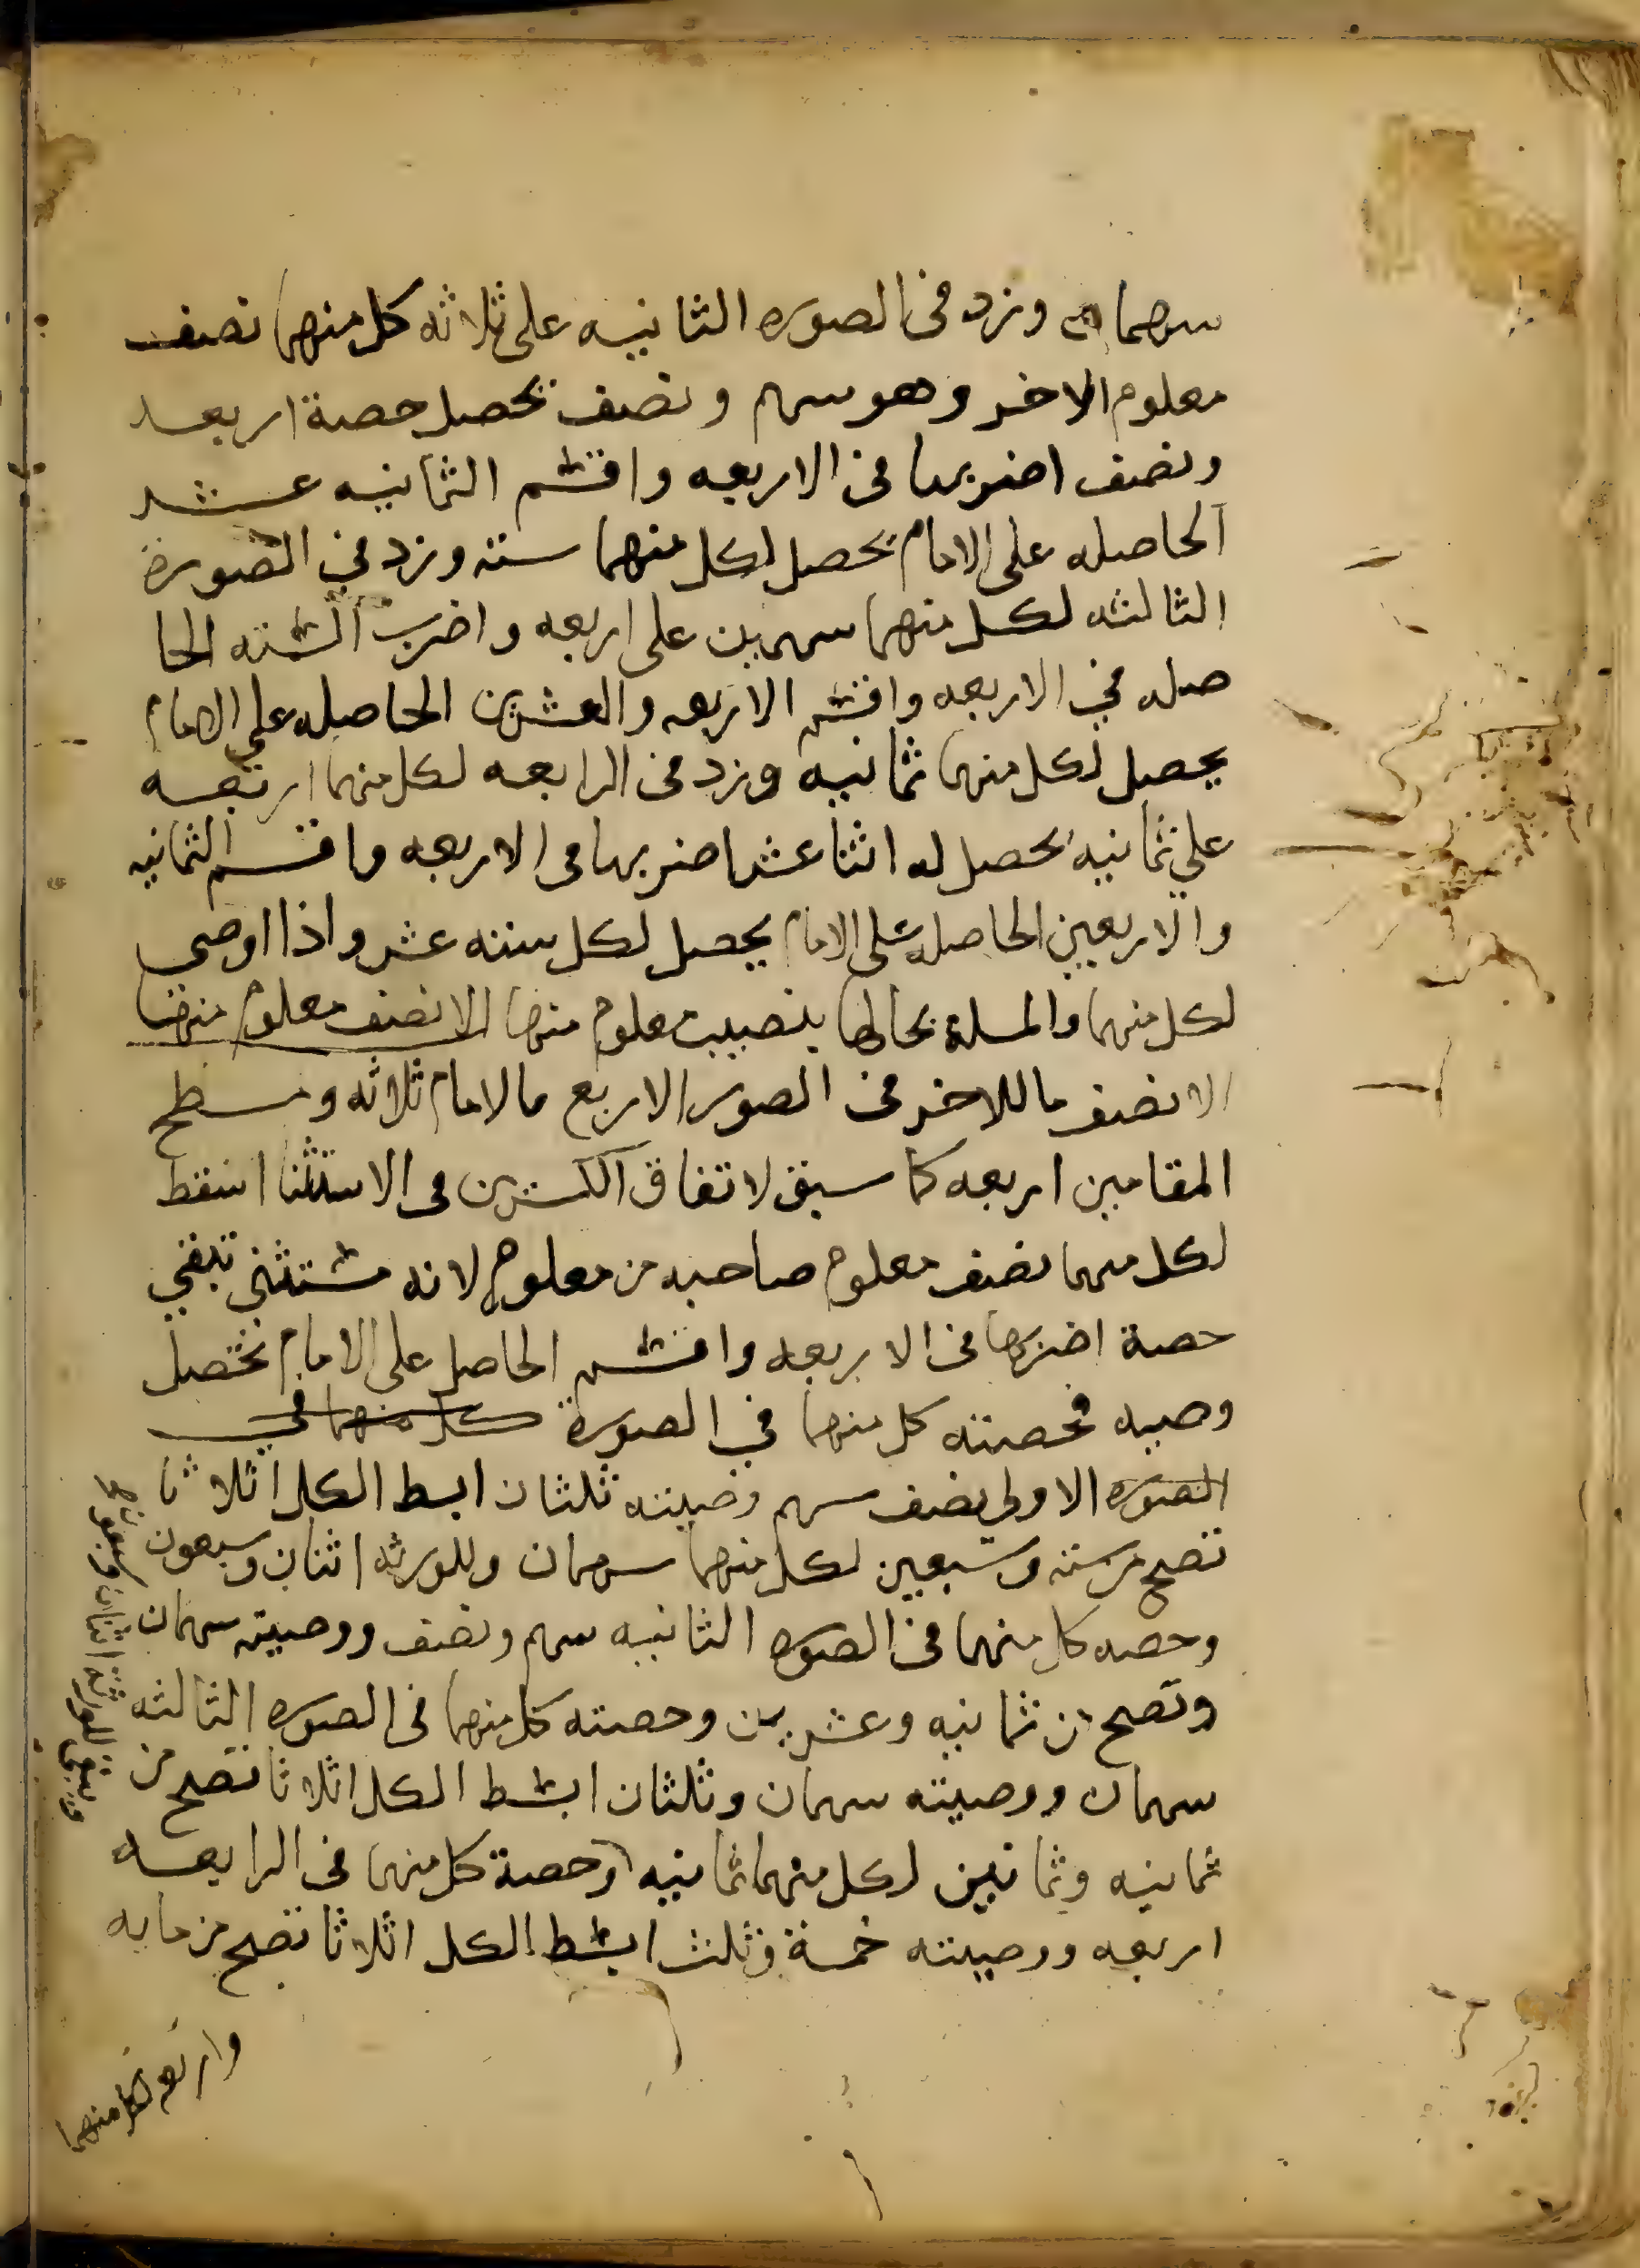 سهمان وزد في الصوره الثانيه على ثلاثه كل منهما نصف
معلوم الاخر وهو سهم ونصف تحصل حصة اربعه
ونصف اضربها في الاربعه واقسم الثمانيه عشر
الحاصله على الامام يحصل لكل منهما سته وزد في الصورة
الثالثه لكل منهما سهمين على اربعه واضرب الستة الحا
صله في الاربعه واقسم الاربعه والعشرين الحاصله على الامام
يحصل لكل منهما ثمانيه وزد في الرابعه لكل منهما اربعه
على ثمانيه يحصل له اثنا عشر اضربها في الاربعه واقسم الثمانيه
والاربعين الحاصله على الامام يحصل لكل ستة عشر واذا اوصى
لكل منهما والمسلة بحالها بنصيب معلوم منها الا نصف معلوم منها
الا نصف ما للاخر في الصور الاربع فالامام ثلاثه ومسطح
المقامين اربعه كما سبق لاتفاق الكسرين في الاستثنا اسقط
لكل منهما نصف معلوم صاحبه من معلومه لانه مستثنى تبقى
حصة اضربها في الاربعه واقسم الحاصل على الامام تحصل
وصيه فحصته كل منهما في الصورة كل منهما في
الصوره الاولى نصف سهم وصيته ثلثان ابسط الكل اثلاثا
تصح من ستة وسبعين لكل منهما سهمان وللورثه اثنان وسبعون
وحصه كل منهما في الصوره الثانيه سهم ونصف ووصيته سهمان
وتصح من ثمانيه وعشرين وحصته كل منهما في الصوره الثالثه
سهمان ووصيته سهمان وثلثان ابسط الكل اثلاثا تصح من
ثمانيه وثمانين لكل منهما ثمانيه وحصة كل منهما في الرابعه
اربعه ووصيته خمسة وثلث ابسط الكل اثلاثا تصح من مايه
واربعه لكل منهما
ويبقى للورثه اثنان وسبعون